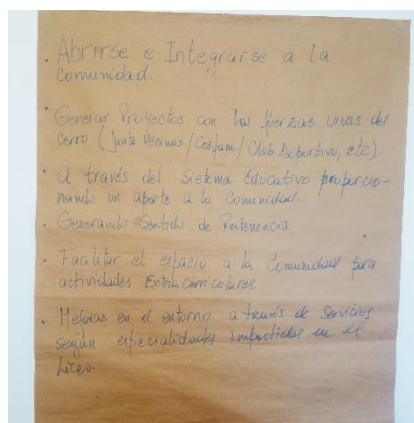 • Abrirse e Integrarse a la
comunidad.
• Generar Proyectos con las fuerzas vivas del
cerro (Junta Vecinos / Cesfam / Club Deportivo, etc).
• A través del Sistema Educativo proporcio-
nando un aporte a la Comunidad.
• Generando Sentido de Pertenencia
• Facilitar el espacio a la Comunidad para
actividades Extra curriculares
• Mejoras en el entorno a través de Servicios
según especialidades impartidas en el
Liceo.